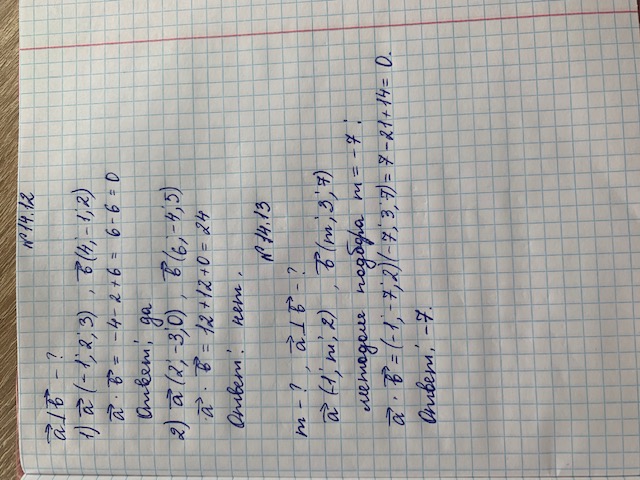 №14.12
a⃗ ⊥ b⃗ - ?
1) a⃗ (-1; 2; 3) , b⃗ (4; -1; 2)
a⃗ · b⃗ = -4 - 2 + 6 = 6 - 6 = 0
Ответ: да
2) a⃗ (2; -3; 0) , b⃗ (6; -4; 5)
a⃗ · b⃗ = 12 + 12 + 0 = 24
Ответ: нет.
№14.13
m - ? , a⃗ ⊥ b⃗ - ?
a⃗ (-1; m; 2) , b⃗ (m; 3; 7)
методом подбора m = -7:
a⃗ · b⃗ = (-1; -7; 2)(-7; 3; 7) = 7 - 21 + 14 = 0.
Ответ: -7.